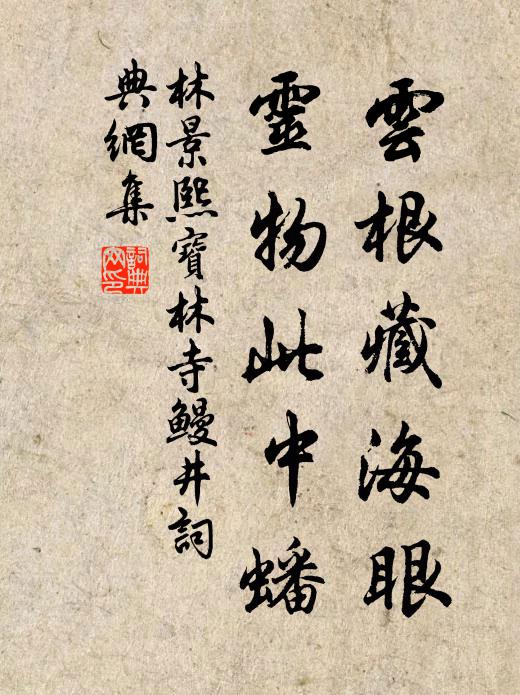 雲根藏海眼
靈物此中蟠
林景熙寶林寺鰻井詞
典網集
詞典
文印